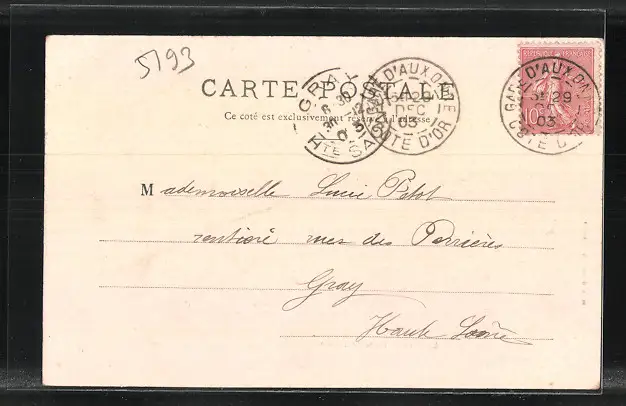 5193
CARTE POSTALE
Ce côté est exclusivement réservé à l'adresse
GRAY
6 30
30 12
03
HTE SAÔNE
GARE D'AUXONNE
29
DEC
03
CÔTE D'OR
RÉPUBLIQUE FRANÇAISE
10
GARE D'AUXONNE
29
03
CÔTE D'OR
Mademoiselle Lucie Petot
rentière rues des Perrières
Gray
Haute Saône